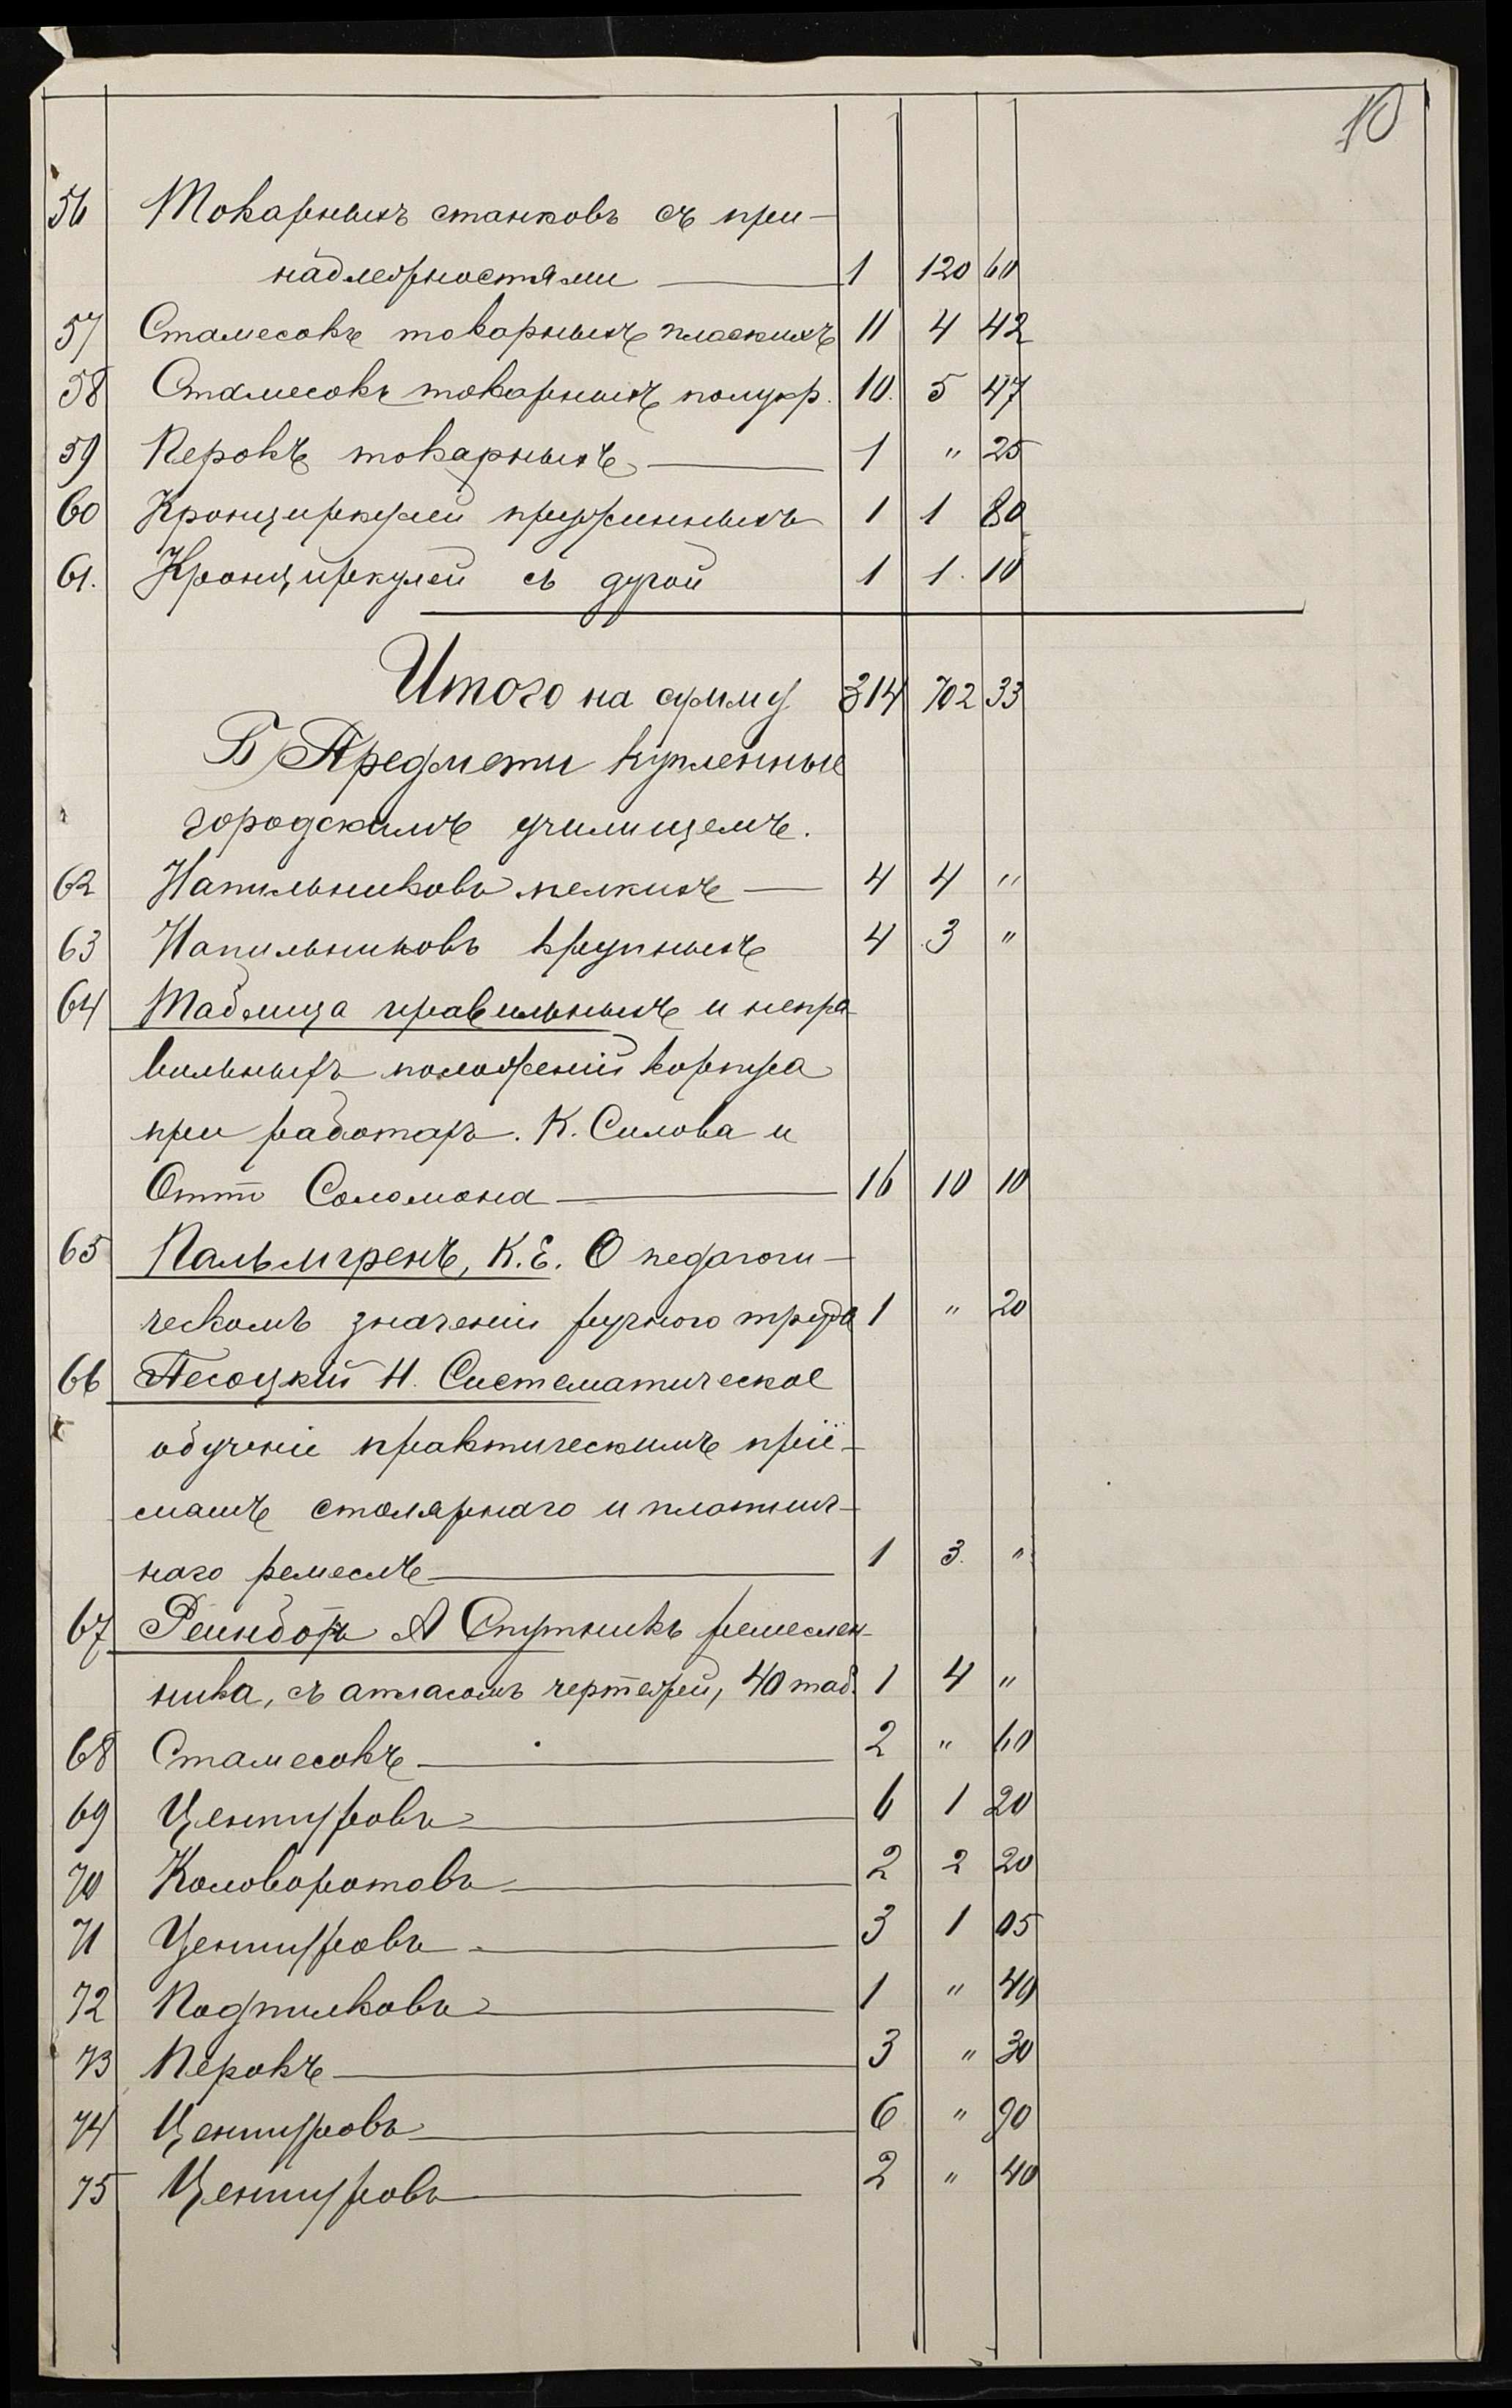 10
56 Токарныхъ станковъ съ при-
надлежностями 1 120 60
57 Стамесокъ токарныхъ пласкихъ 11 4 42
58 Стамесокъ токарныхъ полукр. 10. 5 47
59 Перокъ токарныхъ 1 " 25
60 Кронциркулей пружинныхъ 1 1 80
61. Кронциркулей съ дугой 1 1. 10
Итого на сумму 314 702 33
Б) Предметы купленные
городскимъ училищемъ.
62 Напильниковъ мелкихъ 4 4 "
63 Напильниковъ крупныхъ 4 3 "
64 Таблица правильныхъ и непра-
вильныхъ положеній корпуса
при работахъ. К. Силова и
Отто Саломона 16 10 10
65 Пальмгренъ, К.Е. О педагоги-
ческомъ значеніи ручного труда 1 " 20
66 Песоцкій Н. Систематическое
обученіе практическимъ прiе-
мамъ столярнаго и плотнич-
наго ремеслъ 1 3. "
67 Рейнботъ А Спутникъ ремеслен-
ника, съ атласомъ чертежей, 40 таб. 1 4 "
68 Стамесокъ 2 " 60
69 Центуровъ 6 1 20
70 Коловоротовъ 2 2 20
71 Центировъ 3 1 05
72 Подпилковъ 1 " 40
73 Перокъ 3 " 30
74 Центировъ 6 " 90
75 Центуровъ 2 " 40